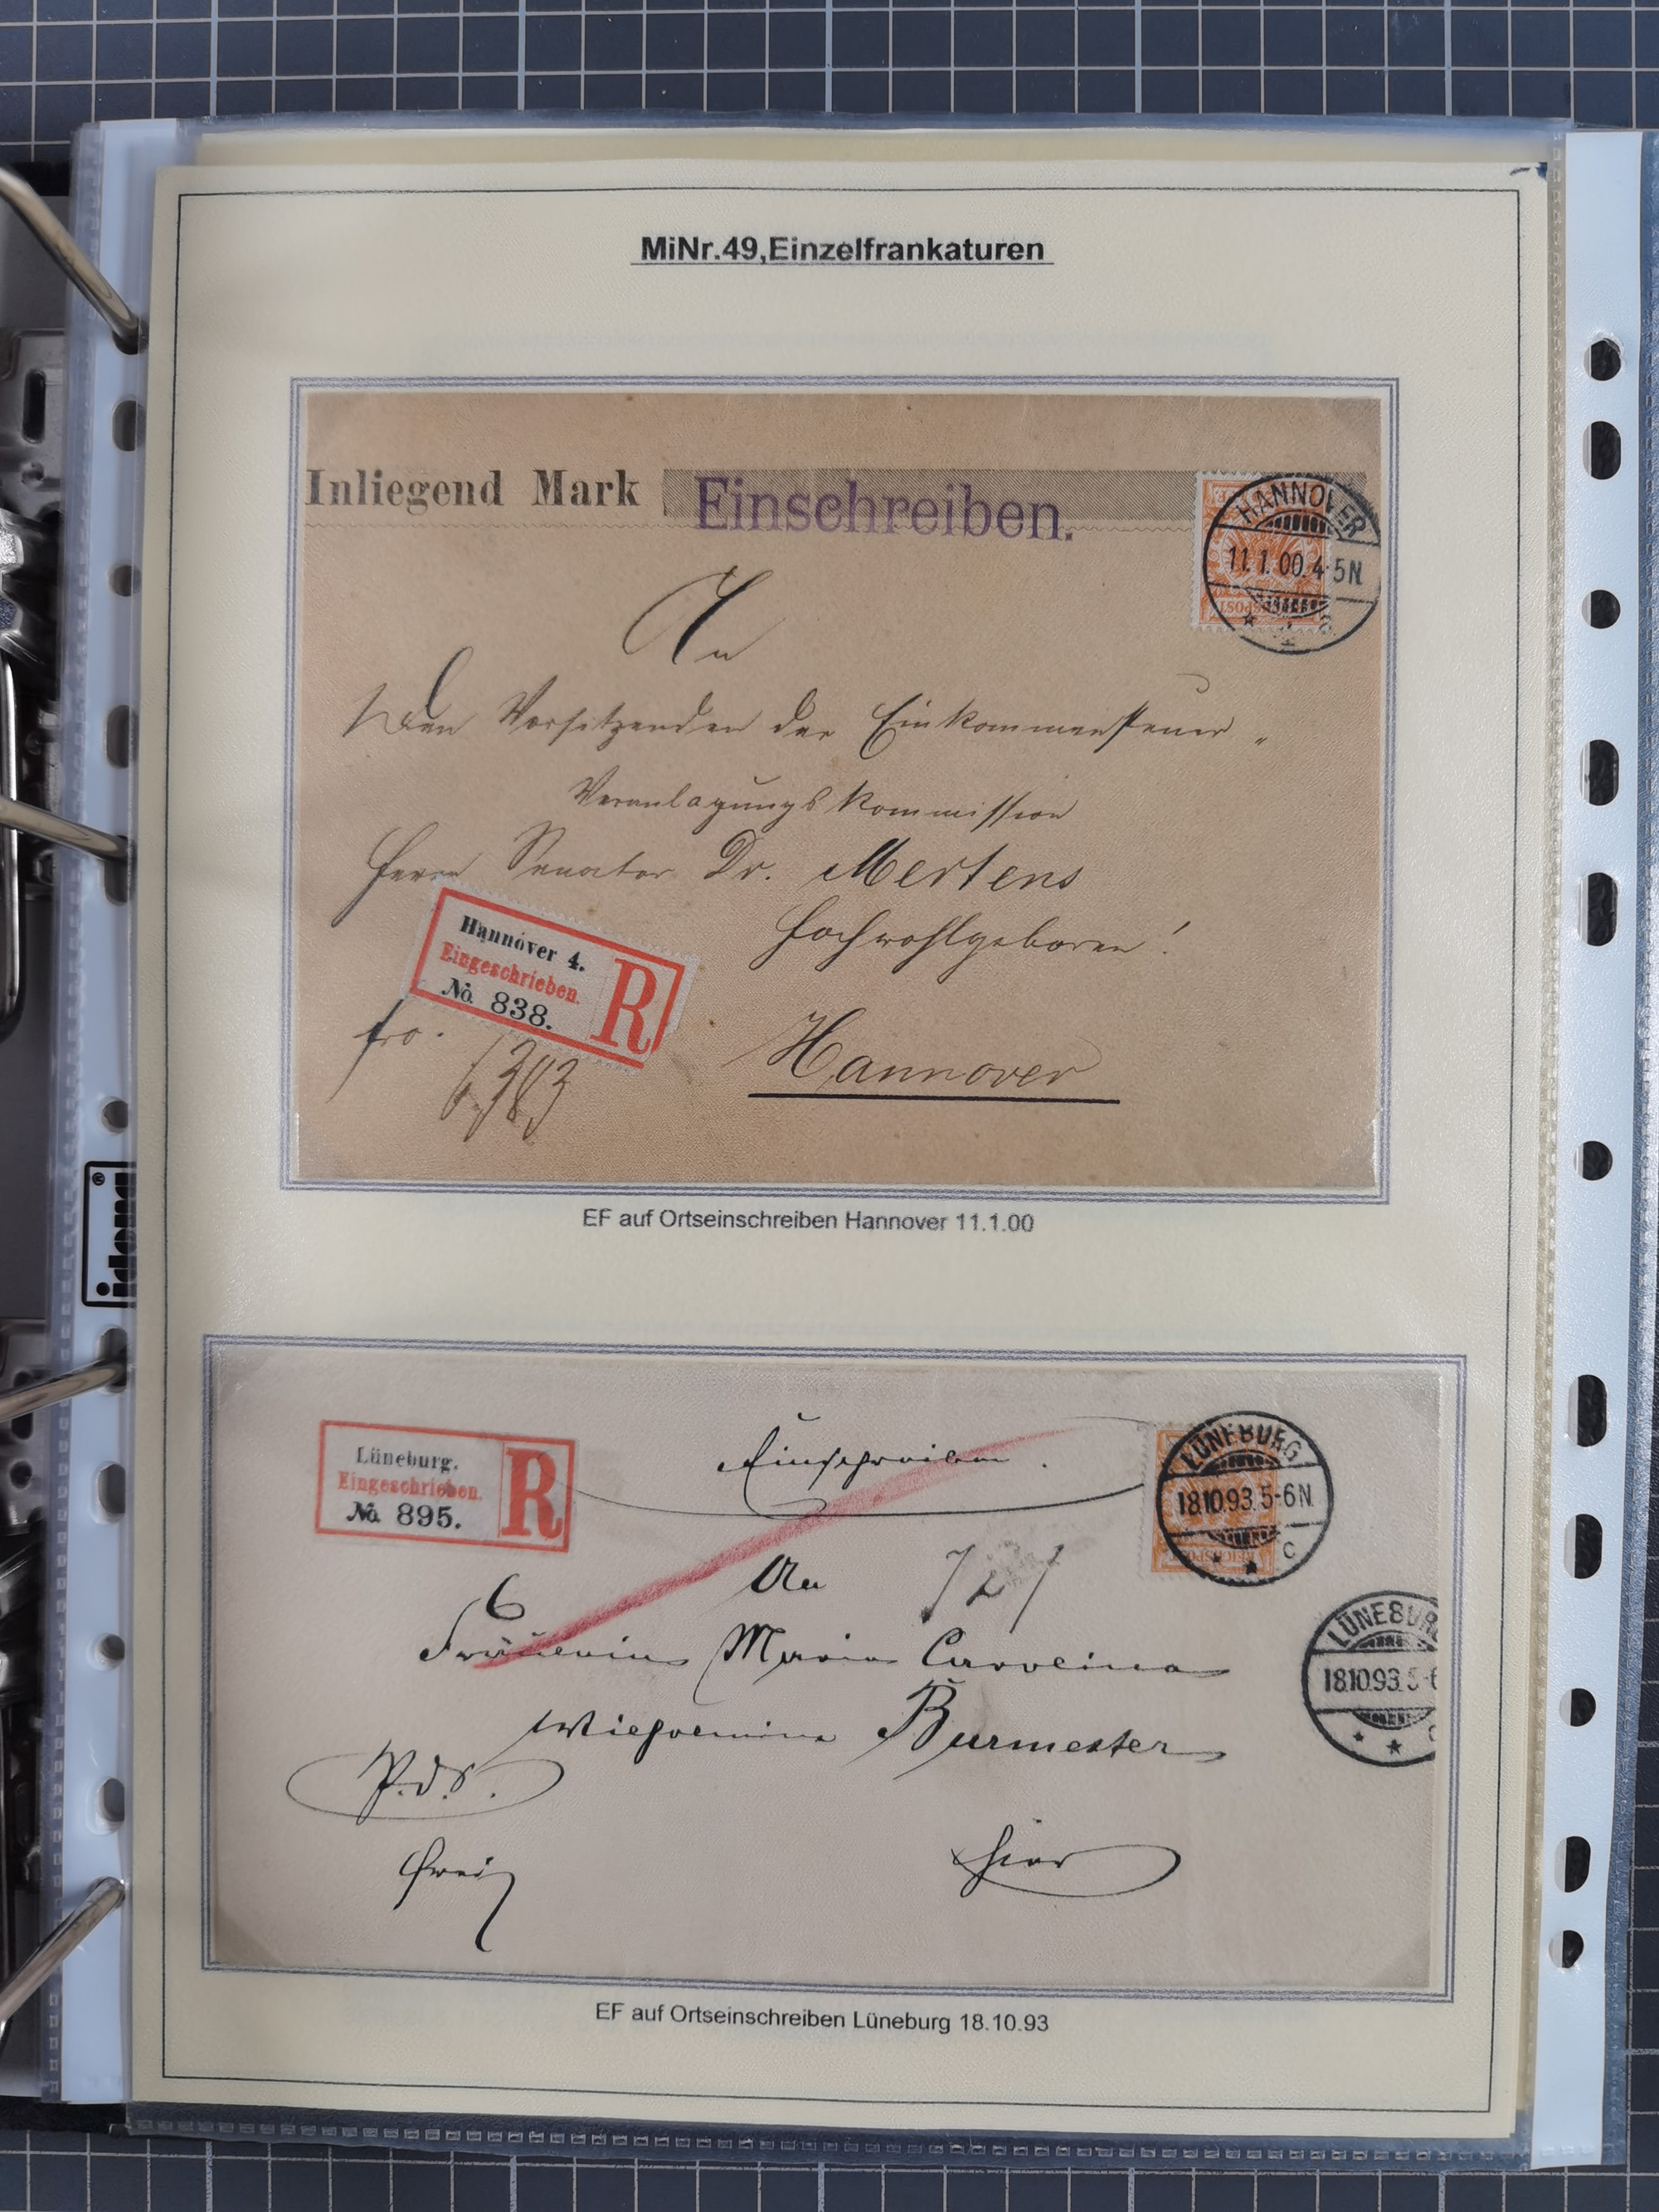 MiNr.49,Einzelfrankaturen
Inliegend Mark
Einschreiben.
HANNOVER
11.1.00.4-5N
REICHSPOST
An
Den Vorsitzenden der Einkommensteuer-
Veranlagungs Kommission
Herrn Senator Dr. Mertens
Hochwohlgeboren!
Hannover 4.
Eingeschrieben.
No. 838.
R
fro.
Hannover
EF auf Ortseinschreiben Hannover 11.1.00
Lüneburg.
Eingeschrieben.
No. 895.
R
Einschreiben.
LÜNEBURG
18.10.93.5-6N.
C
REICHSPOST
An
6
Fräulein Maria Carolina
Wilhelmine Burmester
LÜNEBURG
18.10.93.5-6
P.d.S.
frei
hier
EF auf Ortseinschreiben Lüneburg 18.10.93
idena